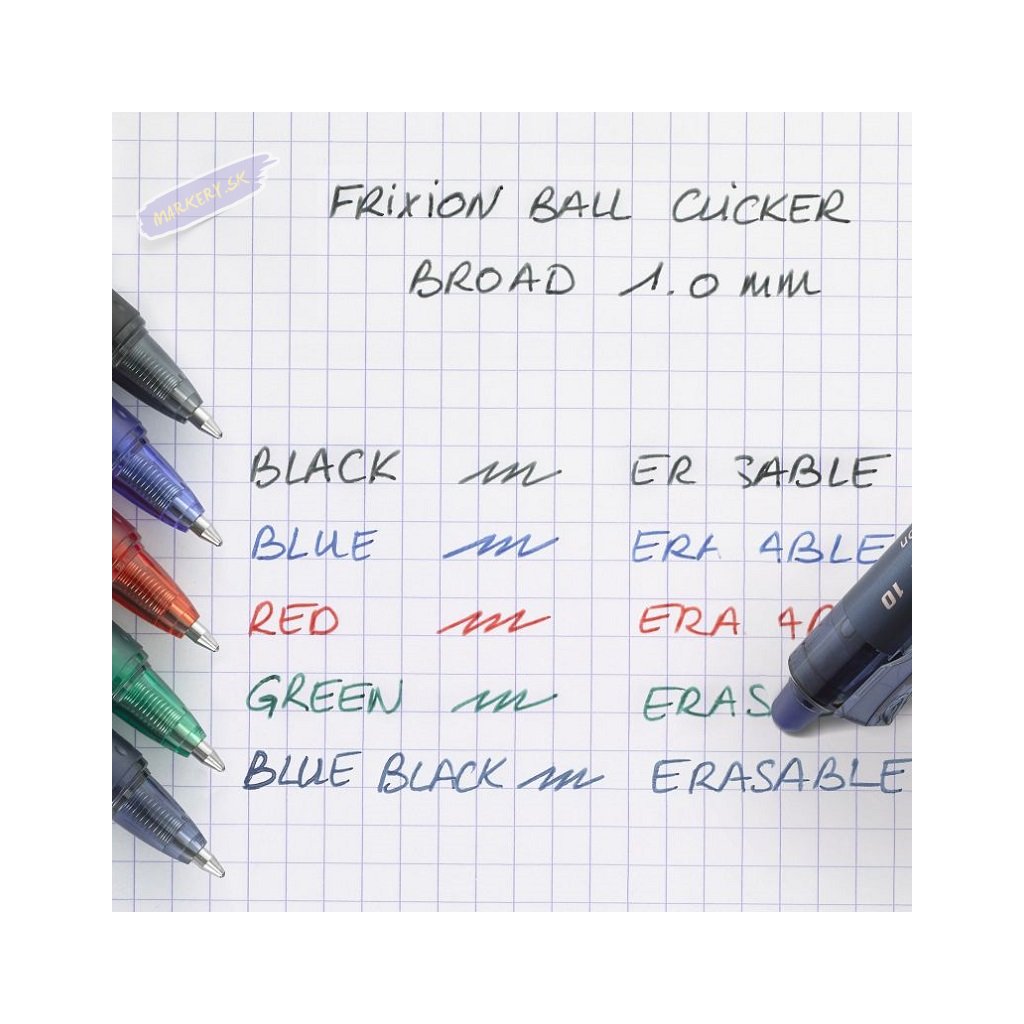 MARKERY.SK
FRiXiON BALL CLiCKER
BROAD 1.0 mm
BLACK ER ABLE
BLUE ERA ABLE
RED ERA
10
GREEN ERAS
BLUE BLACK ERASABLE